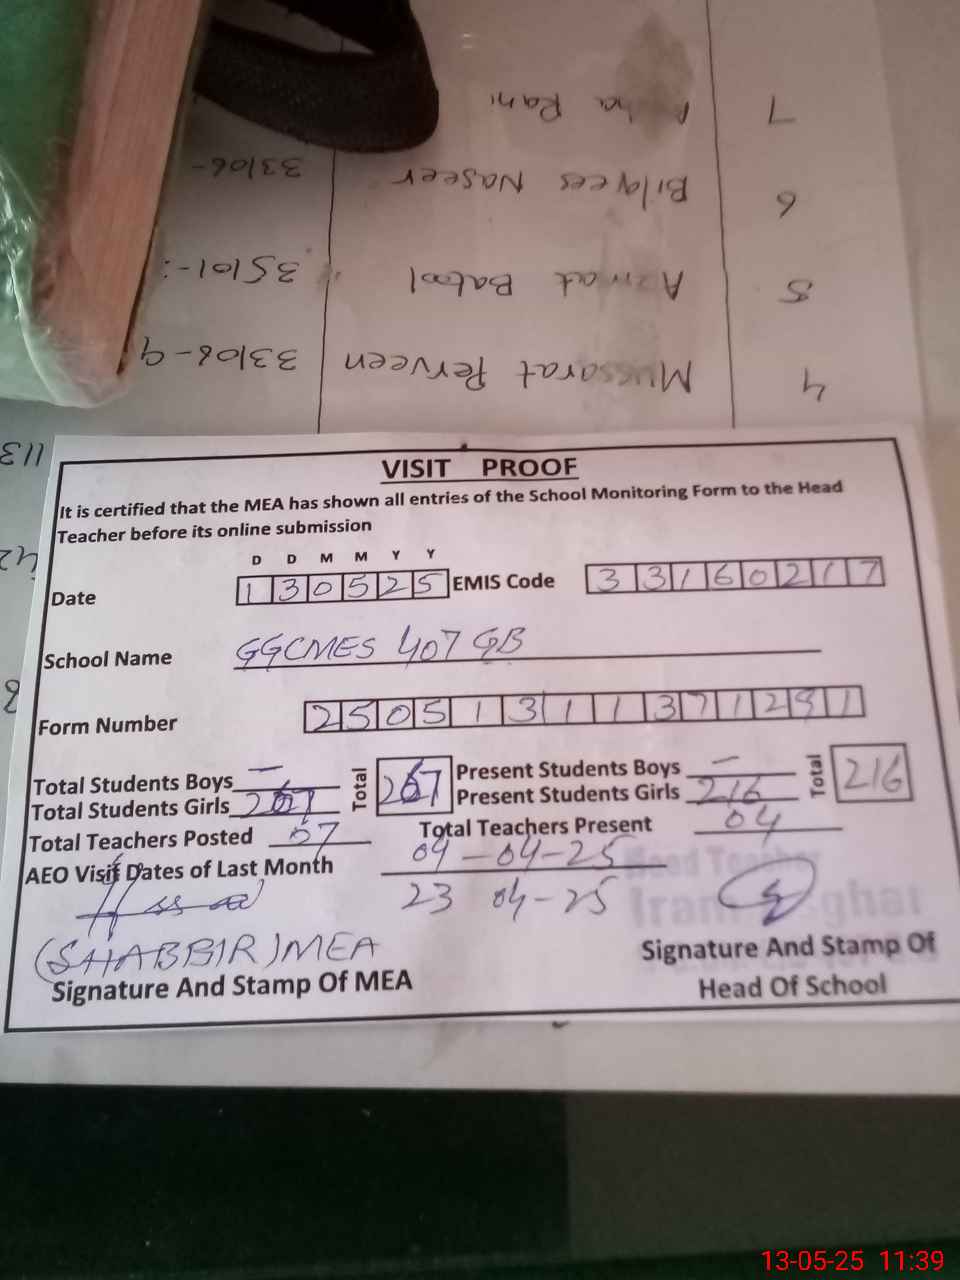 7 Rani
6 Bilqees Naseer 33106-
5 Azmat Batool 35101-
4 Mussarat Perveen 33106-9
113
VISIT PROOF
It is certified that the MEA has shown all entries of the School Monitoring Form to the Head
Teacher before its online submission
D D M M Y Y
Date 130525 EMIS Code 33160217
School Name GGCMES 407 GB
Form Number
Total Students Boys — Total 267 Present Students Boys — Total 216
Total Students Girls 267 Present Students Girls 216
Total Teachers Posted 07 Total Teachers Present 04
AEO Visit Dates of Last Month 09-04-25
23 04-25
Head Teacher
(SHABBIR) MEA
Signature And Stamp Of MEA
Signature And Stamp Of
Head Of School
13-05-25 11:39